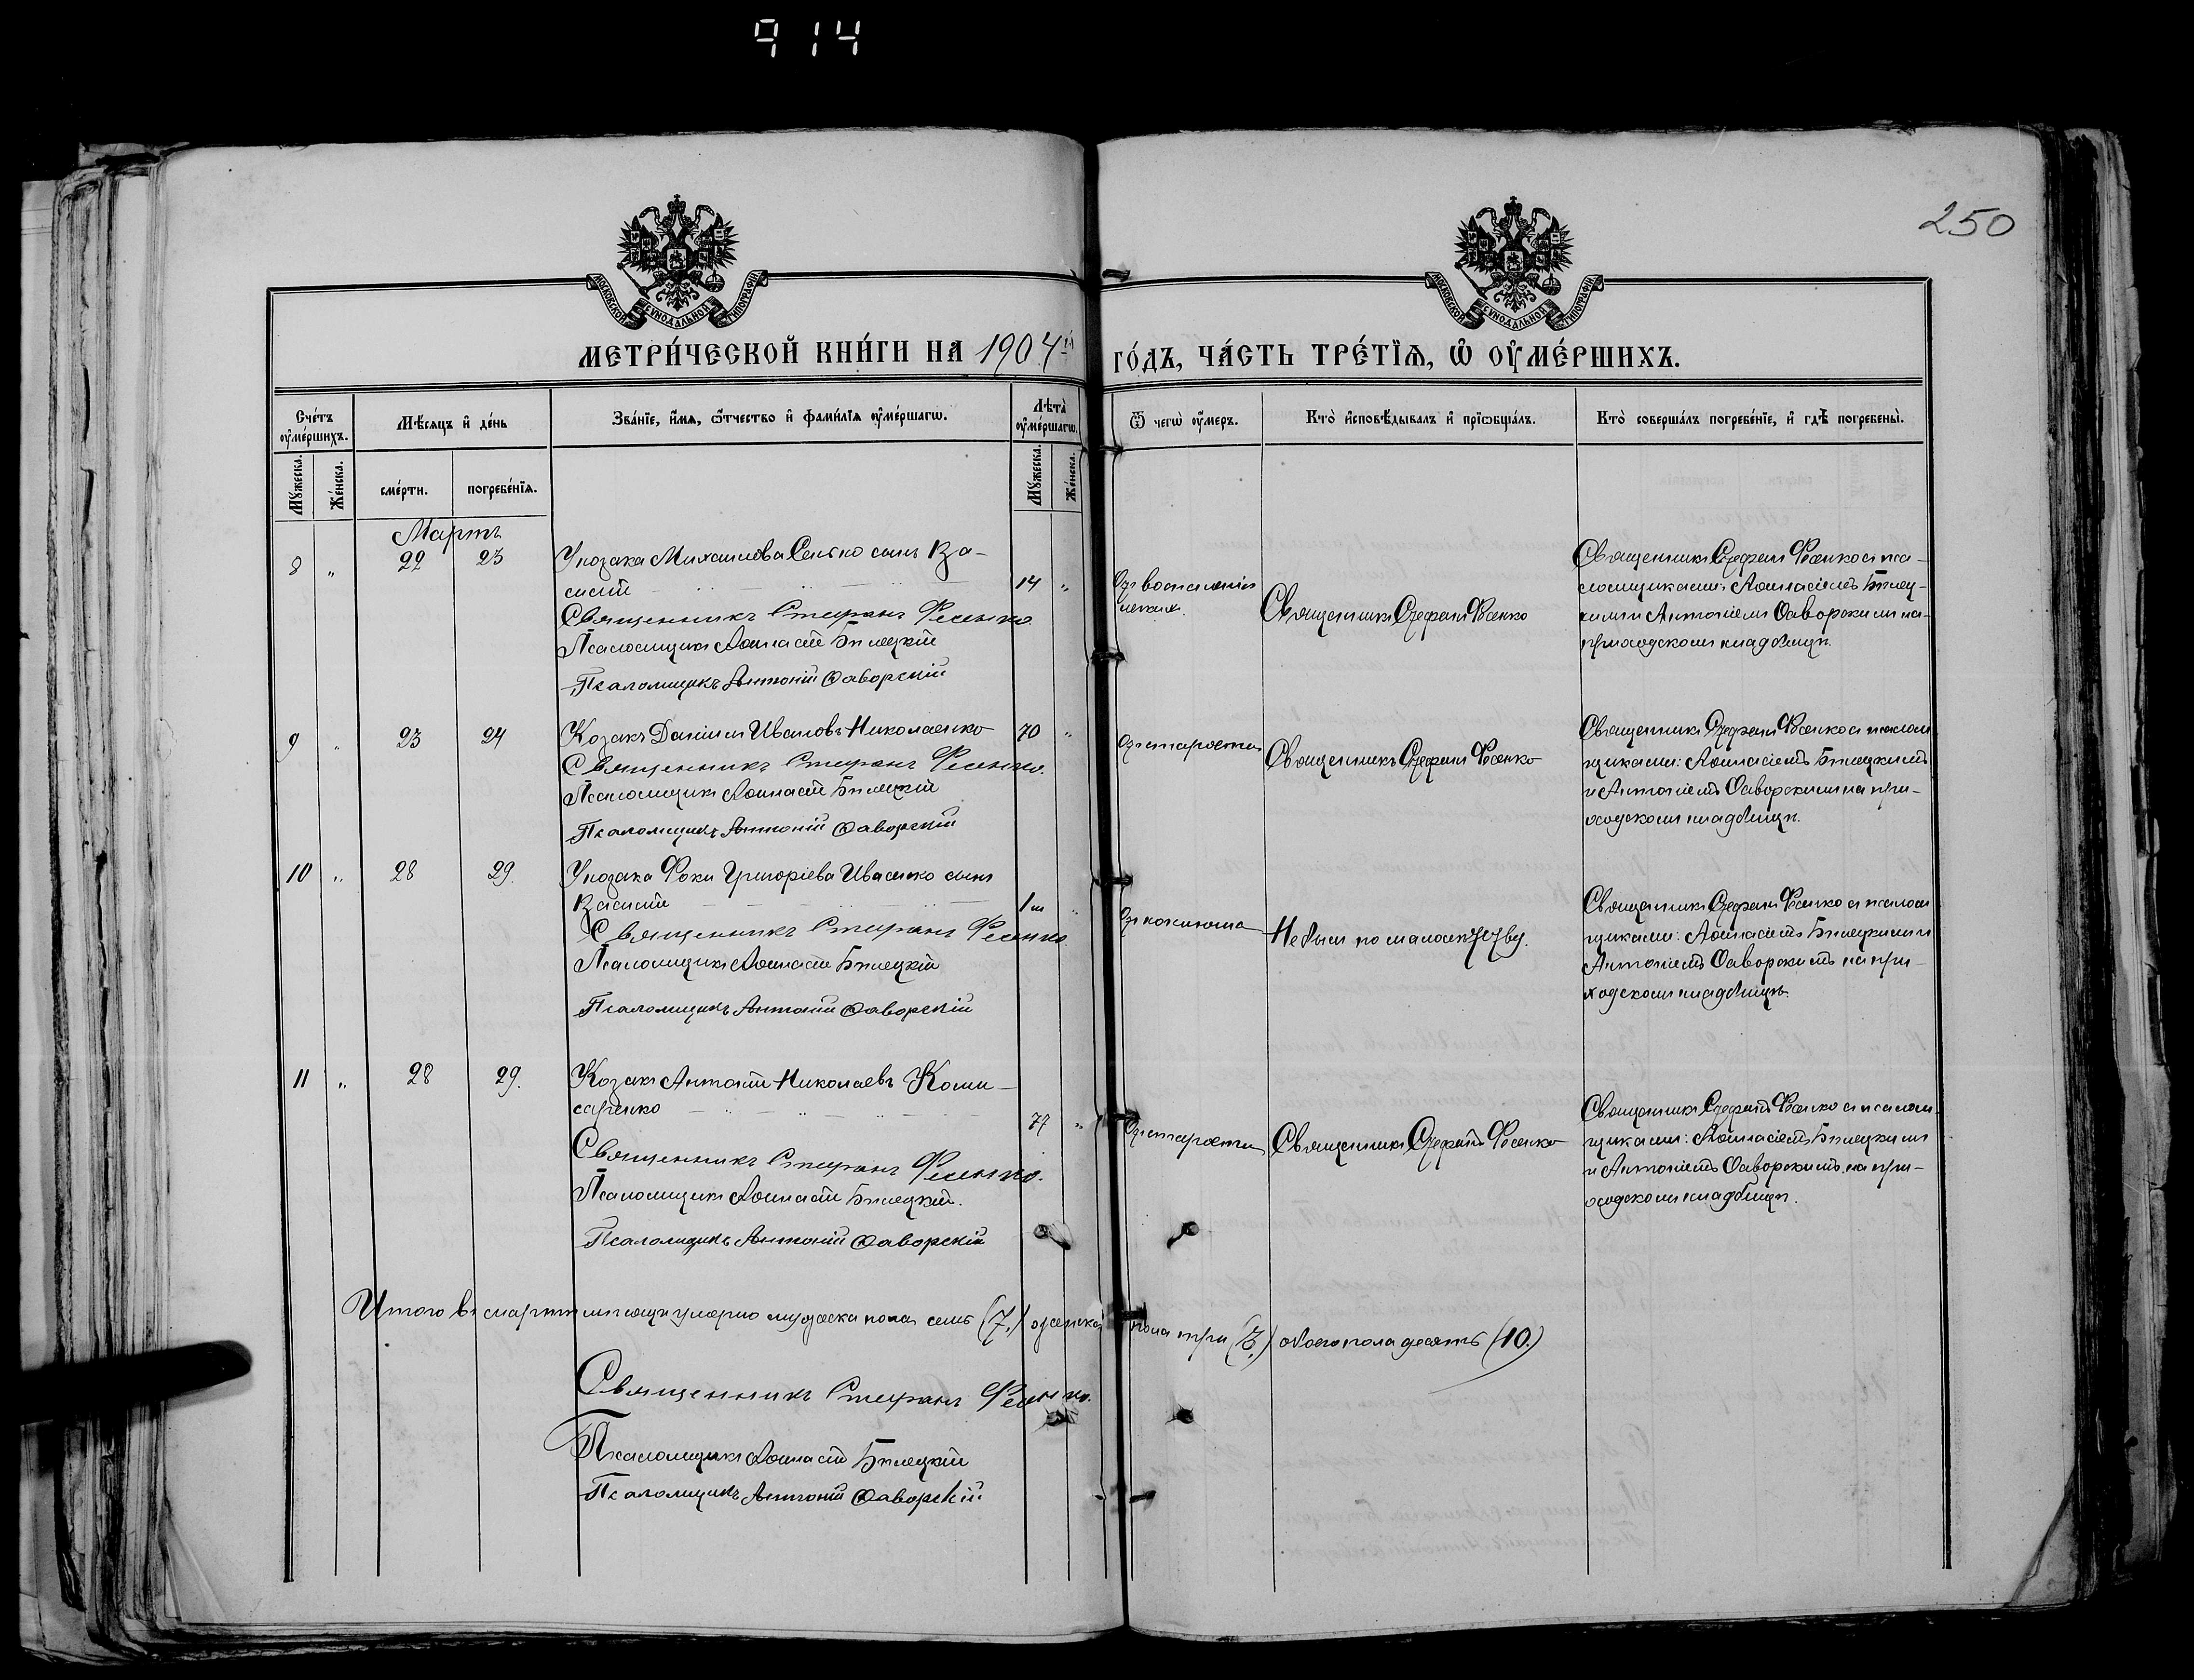 914
250
МОСКОВСКОЙ СѴНОДАЛЬНОЙ ТИПОГРАФІИ
МОСКОВСКОЙ СѴНОДАЛЬНОЙ ТИПОГРАФІИ
МЕТРИ́ЧЕСКОЙ КНИ́ГИ НА 1904й ГО́ДЪ, ЧА́СТЬ ТРЕ́ТЇѦ, Ѡ҆ ОУ҆МЕ́РШИХЪ.
Сче́тъ оу҆ме́ршихъ.
Мѣ́сяцъ и҆ де́нь
Зва́нїе, и҆́мѧ, ѻ҆́тчество и҆ фами́лїѧ оу҆ме́ршагѡ.
Лѣ́та оу҆ме́ршагѡ.
Ѿ чегѡ̀ оу҆́мер.
Кто̀ и҆сповѣ́дывалъ и҆ прїѡбща́лъ.
Кто̀ соверша́лъ погребе́нїе, и҆ гдѣ̀ погребены̀.
Мꙋ́жеска.
Же́нска.
сме́рти.
погребе́нїѧ.
Мꙋ́жеска.
Же́нска.
Мартъ
8 " 22 23 У козака Михаилова Сенько сынъ Ва-
силій 14 "
Священникъ Стефанъ Фесенко
Псаломщикъ Аѳанасій Бѣлецкій
Псаломщикъ Антоній Ѳаворскій
Отъ воспаленія
легких.
Священникъ Стефанъ Фесенко
Священникъ Стефанъ Фесенко съ пса-
ломщиками: Аѳанасіемъ Бѣлец-
кимъ и Антоніемъ Ѳаворскимъ на
приходскомъ кладбищѣ.
9 " 23 24 Козакъ Даніилъ Ивановъ Николаенко 70 "
Священникъ Стефанъ Фесенко.
Псаломщикъ Аѳанасій Бѣлецкій
Псаломщикъ Антоній Ѳаворскій
Отъ старости
Священникъ Стефанъ Фесенко
Священникъ Стефанъ Фесенко съ псалом
щиками: Аѳанасіемъ Бѣлецкимъ
и Антоніемъ Ѳаворскимъ на при-
ходскомъ кладбищѣ.
10 " 28 29. У козака Фоки Григоріева Иваненко сынъ
Василій 1 м "
Священникъ Стефанъ Фесенко
Псаломщикъ Аѳанасій Бѣлецкій
Псаломщикъ Антоній Ѳаворскій
Отъ коклюша
Не былъ по малолѣтству.
Священникъ Стефанъ Фесенко съ псалом
щиками: Аѳанасіемъ Бѣлецкимъ и
Антоніемъ Ѳаворскимъ на при-
ходскомъ кладбищѣ.
11 " 28 29. Козакъ Антоній Николаевъ Коми-
саренко 77 "
Священникъ Стефанъ Фесенко.
Псаломщикъ Аѳанасій Бѣлецкій.
Псаломщикъ Антоній Ѳаворскій
Отъ старости
Священникъ Стефанъ Фесенко
Священникъ Стефанъ Фесенко съ псалом-
щиками: Аѳанасіемъ Бѣлецкимъ
и Антоніемъ Ѳаворскимъ на при-
ходскомъ кладбищѣ.
Итого въ мартѣ мѣсяцѣ умерло мужеска пола семь (7.) женска пола три (3.) обоего пола десять (10.)
Священникъ Стефанъ Фесенко.
Псаломщикъ Аѳанасій Бѣлецкій
Псаломщикъ Антоній Ѳаворскій